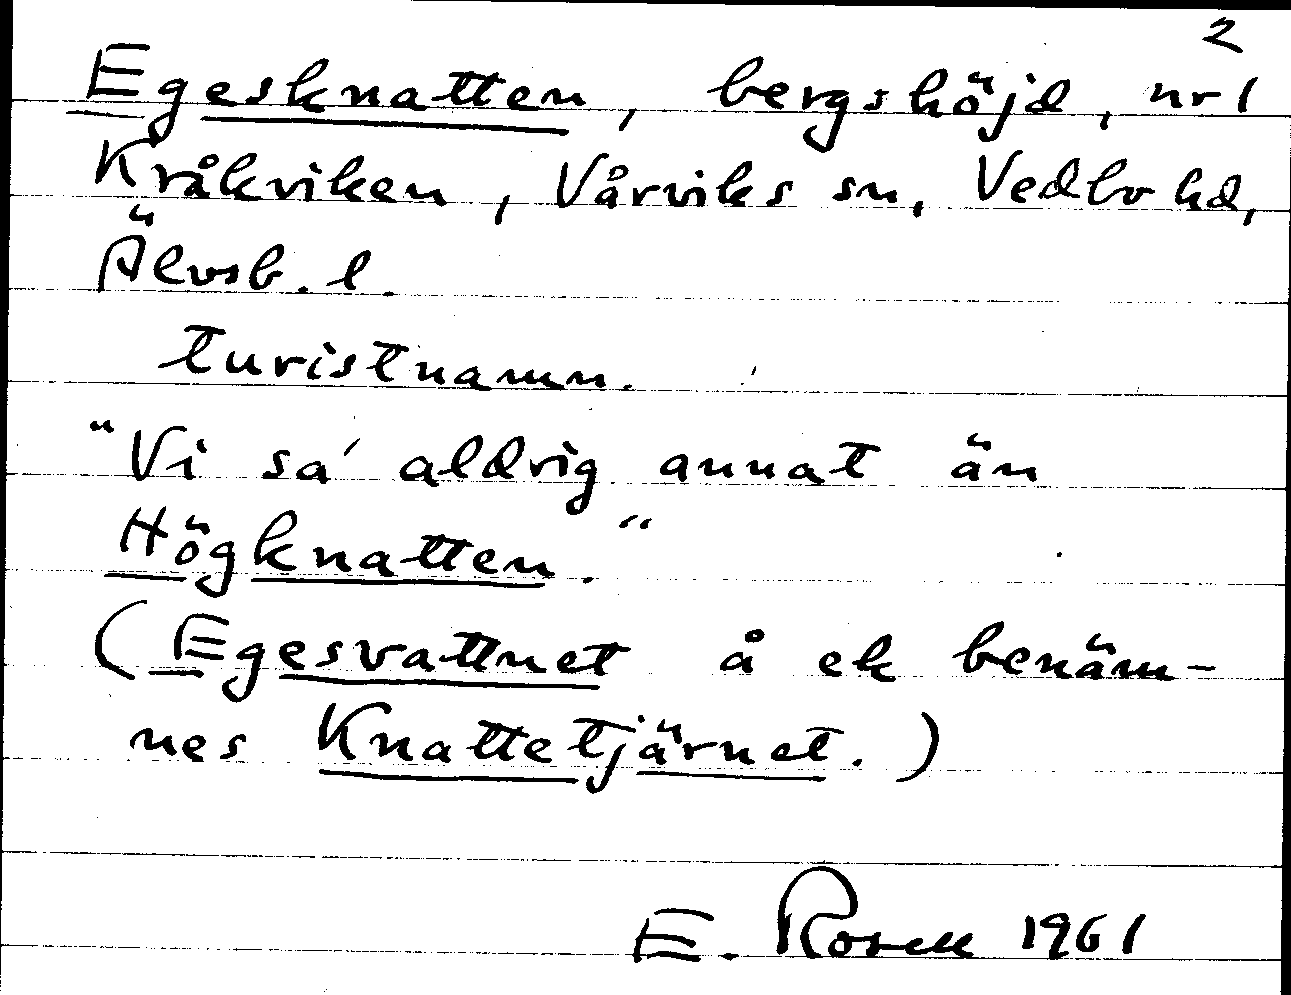 2
Egesknatten, bergshöjd, nr 1
Kråkviken, Vårviks sn, Vedbo hd,
Älvsb. l.
turistnamn.
"Vi sa' aldrig annat än
Högknatten."
(Egesvattnet å ek benäm-
nes Knattetjärnet.)
E. Rosell 1961